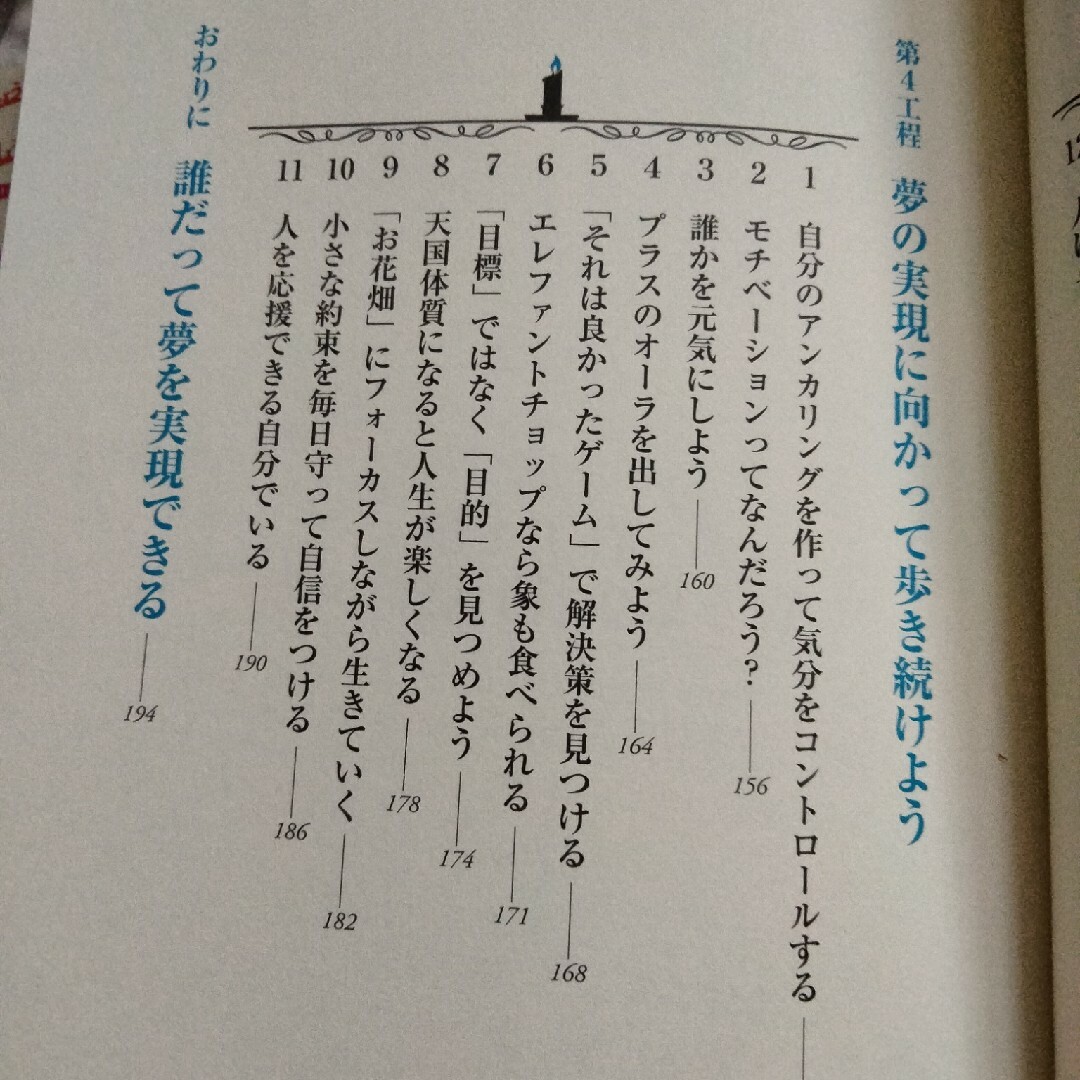 第4工程 夢の実現に向かって歩き続けよう
1 自分のアンカリングを作って気分をコントロールする
2 モチベーションってなんだろう? 156
3 誰かを元気にしよう 160
4 プラスのオーラを出してみよう 164
5 「それは良かったゲーム」で解決策を見つける 168
6 エレファントチョップなら象も食べられる 171
7 「目標」ではなく「目的」を見つめよう 174
8 天国体質になると人生が楽しくなる 178
9 「お花畑」にフォーカスしながら生きていく 182
10 小さな約束を毎日守って自信をつける 186
11 人を応援できる自分でいる 190
おわりに 誰だって夢を実現できる 194